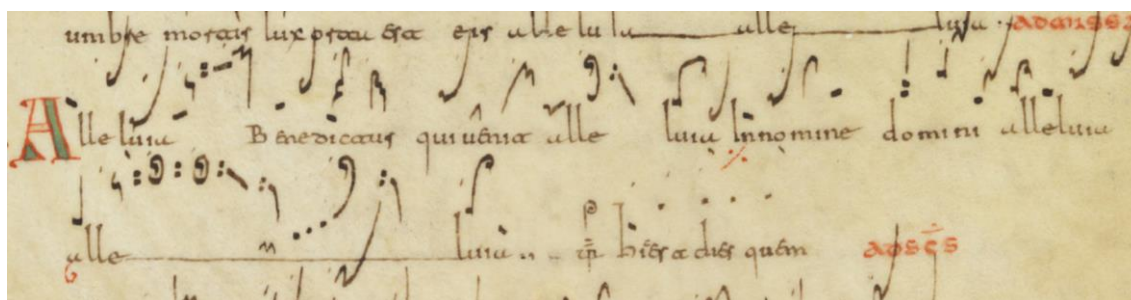 umbre mortis lux est eis alleluia alle luia
Alleluia Benedictus qui uenit alle luia In nomine domini alleluia
alle luia dies quem AD SCS